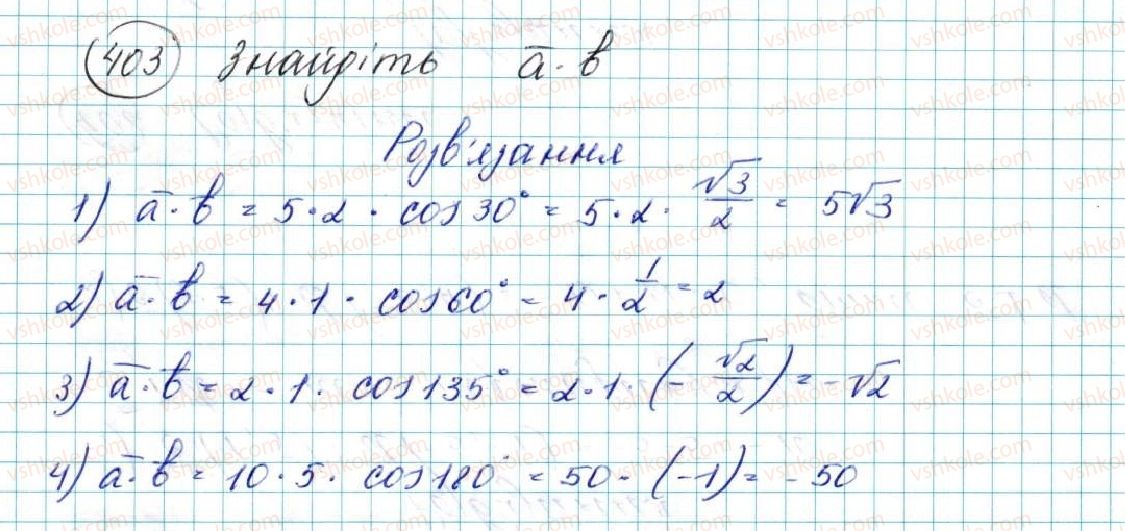 403 Знайдіть a̅ · b̅
Розв'язання
1) a̅ · b̅ = 5 · 2 · cos 30° = 5 · 2 · √3/2 = 5√3
2) a̅ · b̅ = 4 · 1 · cos 60° = 4 · 1/2 = 2
3) a̅ · b̅ = 2 · 1 · cos 135° = 2 · 1 · (-√2/2) = -√2
4) a̅ · b̅ = 10 · 5 · cos 180° = 50 · (-1) = -50
vshkole.com